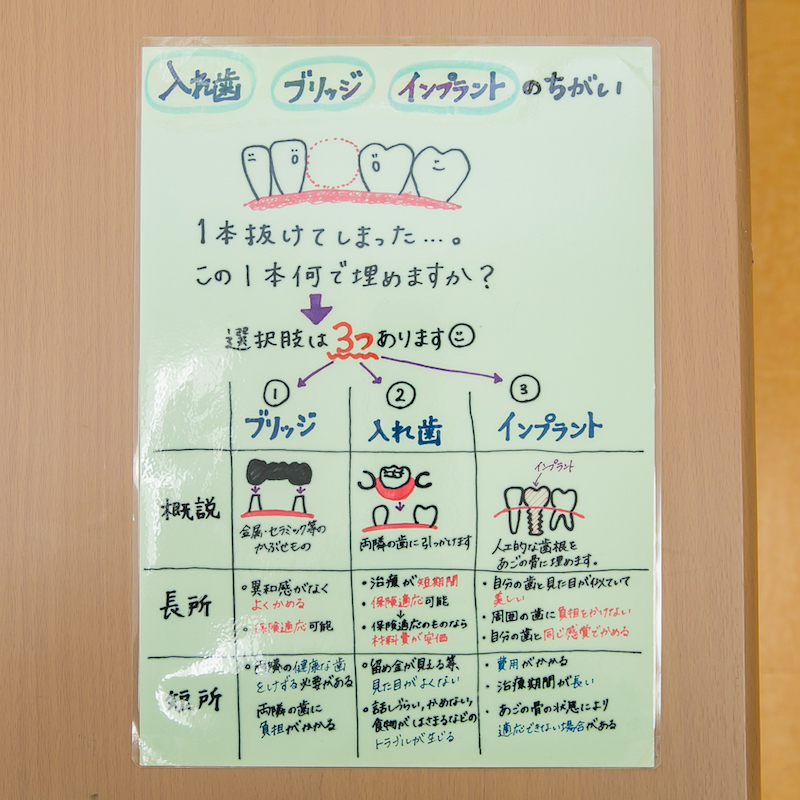 入れ歯 ブリッジ インプラント のちがい
1本抜けてしまった…。
この1本何で埋めますか?
選択肢は3つあります
① ② ③
ブリッジ 入れ歯 インプラント
概説
金属・セラミック等の
かぶせもの
両隣の歯に引っかけます
インプラント
人工的な歯根を
あごの骨に埋めます。
長所
・異和感がなく
よくかめる
・保険適応可能
・治療が短期間
・保険適応可能
・保険適応のものなら
材料費が安価
・自分の歯と見た目が似ていて
美しい
・周囲の歯に負担をかけない
・自分の歯と同じ感覚でかめる
短所
・両隣の健康な歯
をけずる必要がある
両隣の歯に
負担がかかる
・留め金が見える等、
見た目がよくない
・話しづらい、かめない、
食物がはさまるなどの
トラブルが生じる
・費用がかかる
・治療期間が長い
・あごの骨の状態により
適応できない場合がある